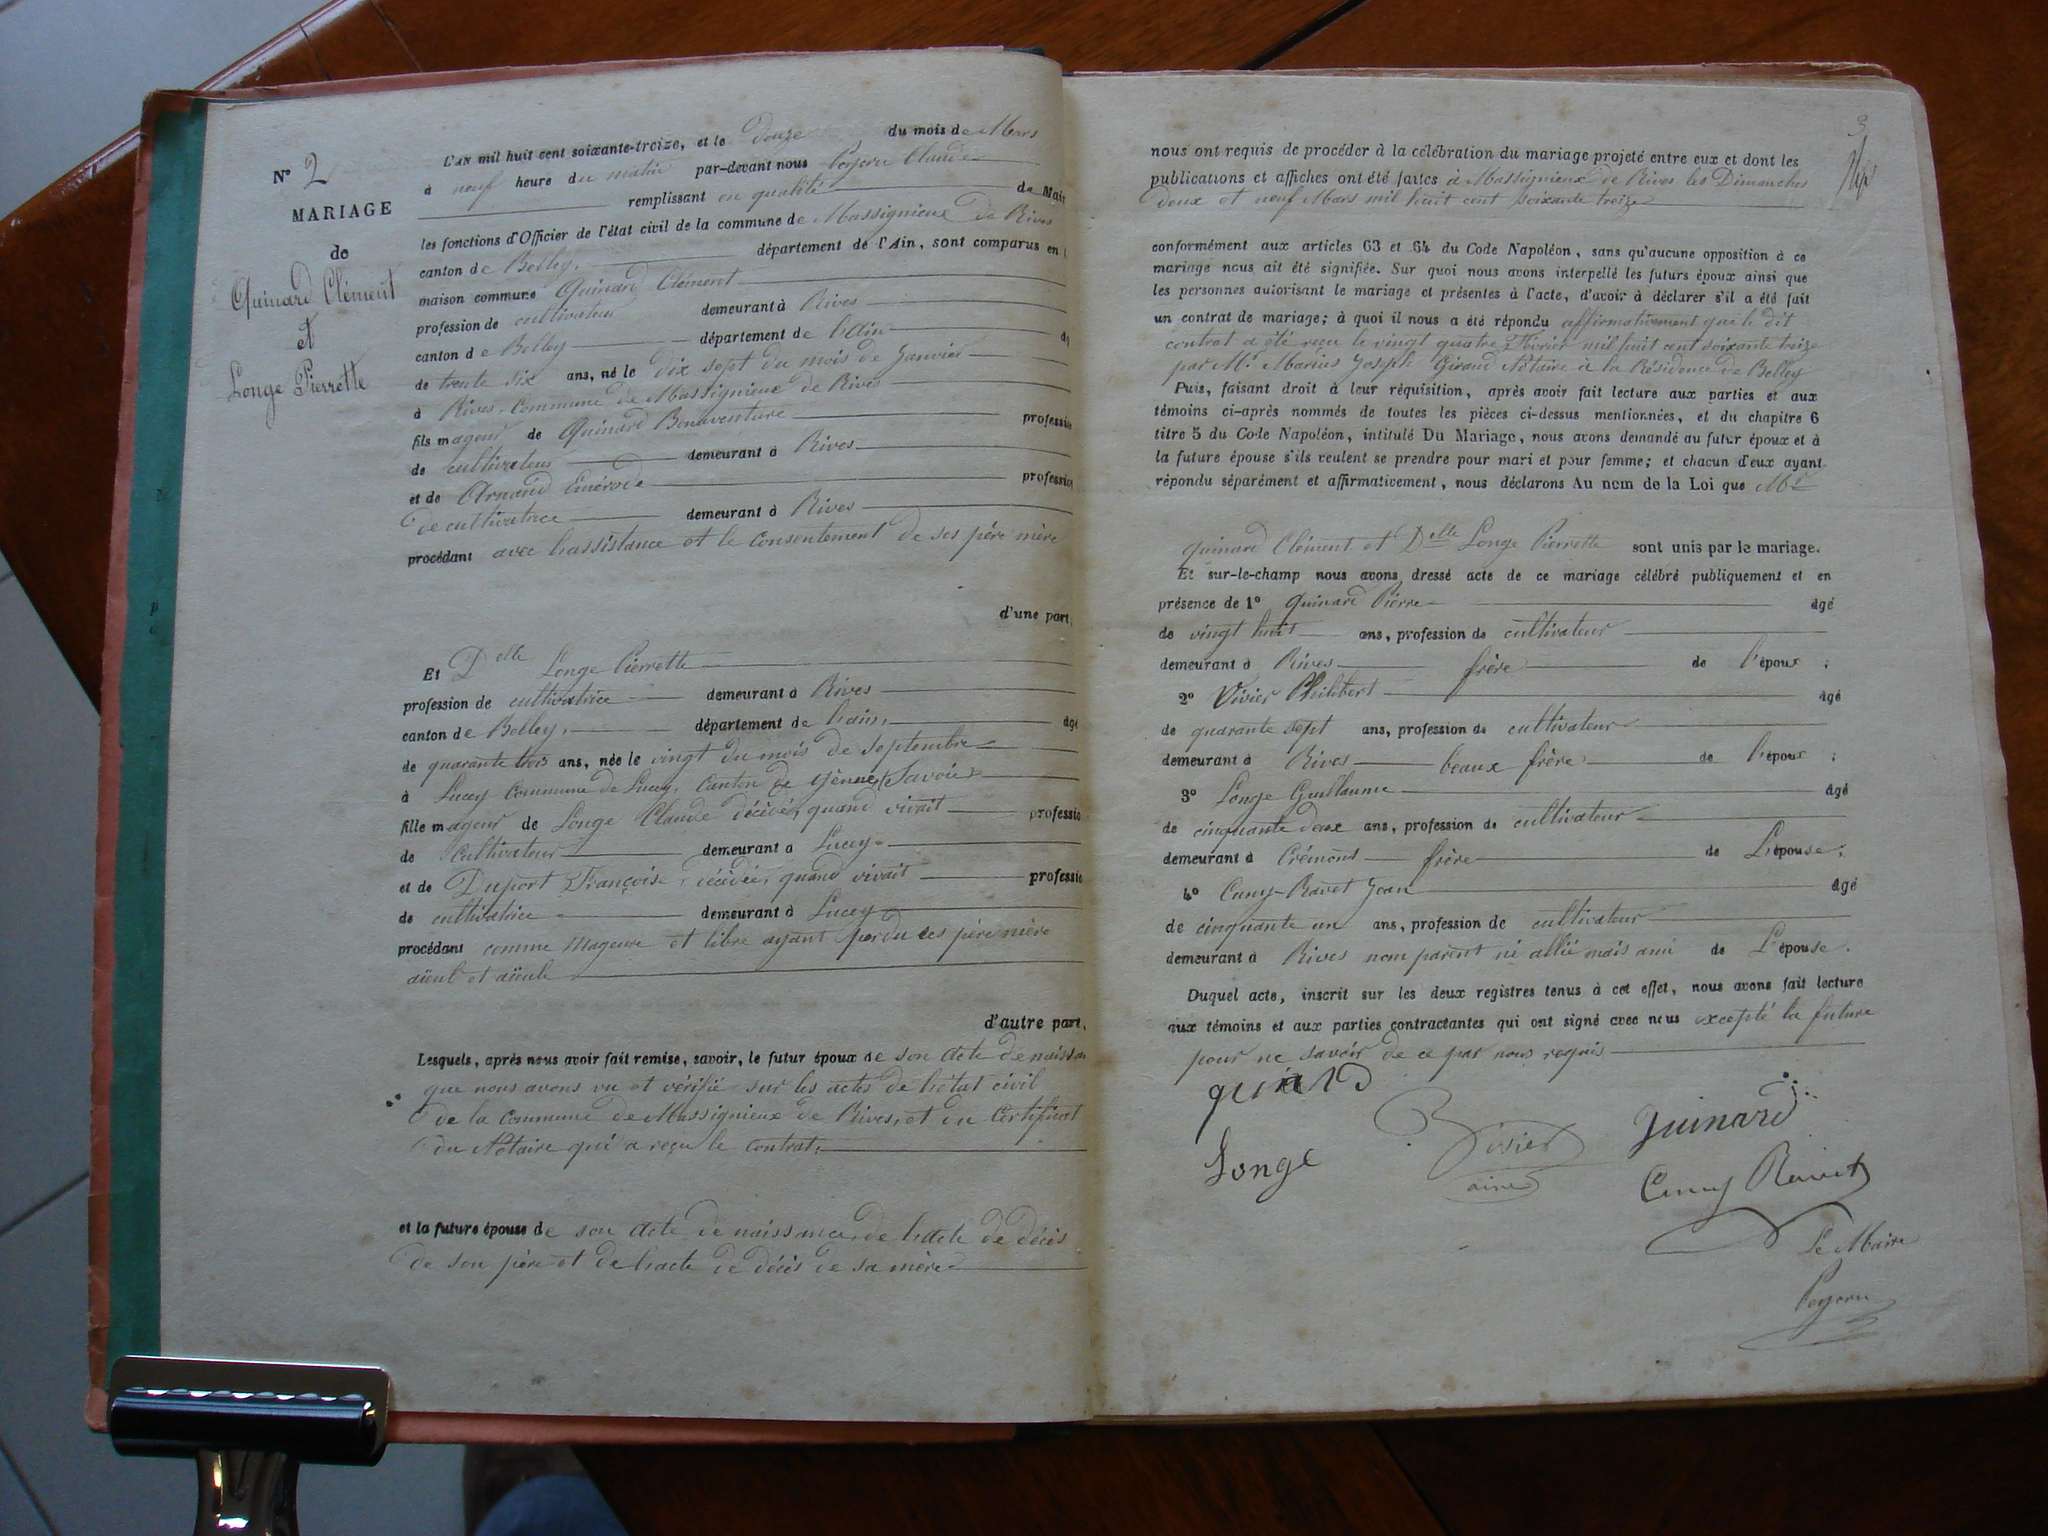 N° 2
MARIAGE
de
Quinard Clément
et
Longe Pierrette
L'AN mil huit cent soixante-treize, et le douze du mois de Mars
à neuf heure du matin par-devant nous Peysson Claude
remplissant en qualité de Mair
les fonctions d'Officier de l'état civil de la commune de Massignieux de Rives
canton de Belley, département de l'Ain, sont comparus en l
maison commune Quinard Clément
profession de cultivateur demeurant à Rives
canton de Belley département de l'Ain âg
de trente six ans, né le dix sept du mois de Janvier
à Rives commune de Massignieux de Rives
fils mageur de Quinard Bonaventure professio
de cultivateur demeurant à Rives
et de Arnaud Emérode profession
de cultivatrice demeurant à Rives
procédant avec l'assistance et le consentement de ses père mère
d'une part,
Et Delle Longe Pierrette
profession de cultivatrice demeurant à Rives
canton de Belley, département de l'ain, âgé
de quarante trois ans, née le vingt du mois de septembre
à Lucey commune de Lucey, Canton de Yenne (Savoie)
fille mageur de Longe Claude décédé, quand vivait professio
de cultivateur demeurant à Lucey
et de Duport Françoise, décédée, quand vivait professio
de cultivatrice demeurant à Lucey
procédant comme mageure et libre ayant perdu ses père mère
aïeul et aïeule
d'autre part,
Lesquels, après nous avoir fait remise, savoir, le futur époux de son acte de naissan
que nous avons vu et vérifié sur les actes de l'état civil
de la commune de Massignieux de Rives, et du Certificat
du Notaire qui a reçu le contrat,
et la future épouse de son acte de naissance, de l'acte de décès
de son père et de l'acte de décès de sa mère
3
nous ont requis de procéder à la célébration du mariage projeté entre eux et dont les
publications et affiches ont été faites à Massignieux de Rives les Dimanches
deux et neuf Mars mil huit cent soixante treize
conformément aux articles 63 et 64 du Code Napoléon, sans qu'aucune opposition à ce
mariage nous ait été signifiée. Sur quoi nous avons interpellé les futurs époux ainsi que
les personnes autorisant le mariage et présentes à l'acte, d'avoir à déclarer s'il a été fait
un contrat de mariage; à quoi il nous a été répondu affirmativement que le dit
contrat a été reçu le vingt quatre Février mil huit cent soixante treize
par Mr. Marius Joseph Girand Notaire à la Résidence de Belley
Puis, faisant droit à leur réquisition, après avoir fait lecture aux parties et aux
témoins ci-après nommés de toutes les pièces ci-dessus mentionnées, et du chapitre 6
titre 5 du Code Napoléon, intitulé Du Mariage, nous avons demandé au futur époux et à
la future épouse s'ils veulent se prendre pour mari et pour femme; et chacun d'eux ayant
répondu séparément et affirmativement, nous déclarons Au nom de la Loi que Mr
Quinard Clément et Delle Longe Pierrette sont unis par le mariage.
Et sur-le-champ nous avons dressé acte de ce mariage célébré publiquement et en
présence de 1° Quinard Pierre âgé
de vingt huit ans, profession de cultivateur
demeurant à Rives frère de l'époux ;
2° Vivier Philibert âgé
de quarante sept ans, profession de cultivateur
demeurant à Rives beaux frère de l'époux ;
3° Longe Guillaume âgé
de cinquante deux ans, profession de cultivateur
demeurant à Crémons frère de L'épouse;
4° Cuny-Ravet Jean âgé
de cinquante un ans, profession de cultivateur
demeurant à Rives nom parent ni allié mais ami de L'épouse.
Duquel acte, inscrit sur les deux registres tenus à cet effet, nous avons fait lecture
aux témoins et aux parties contractantes qui ont signé avec nous excepté la future
pour ne savoir de ce par nous requis
quinard
Vivier
ainé
Quinard
Longe
Cuny Ravet
Le Maire